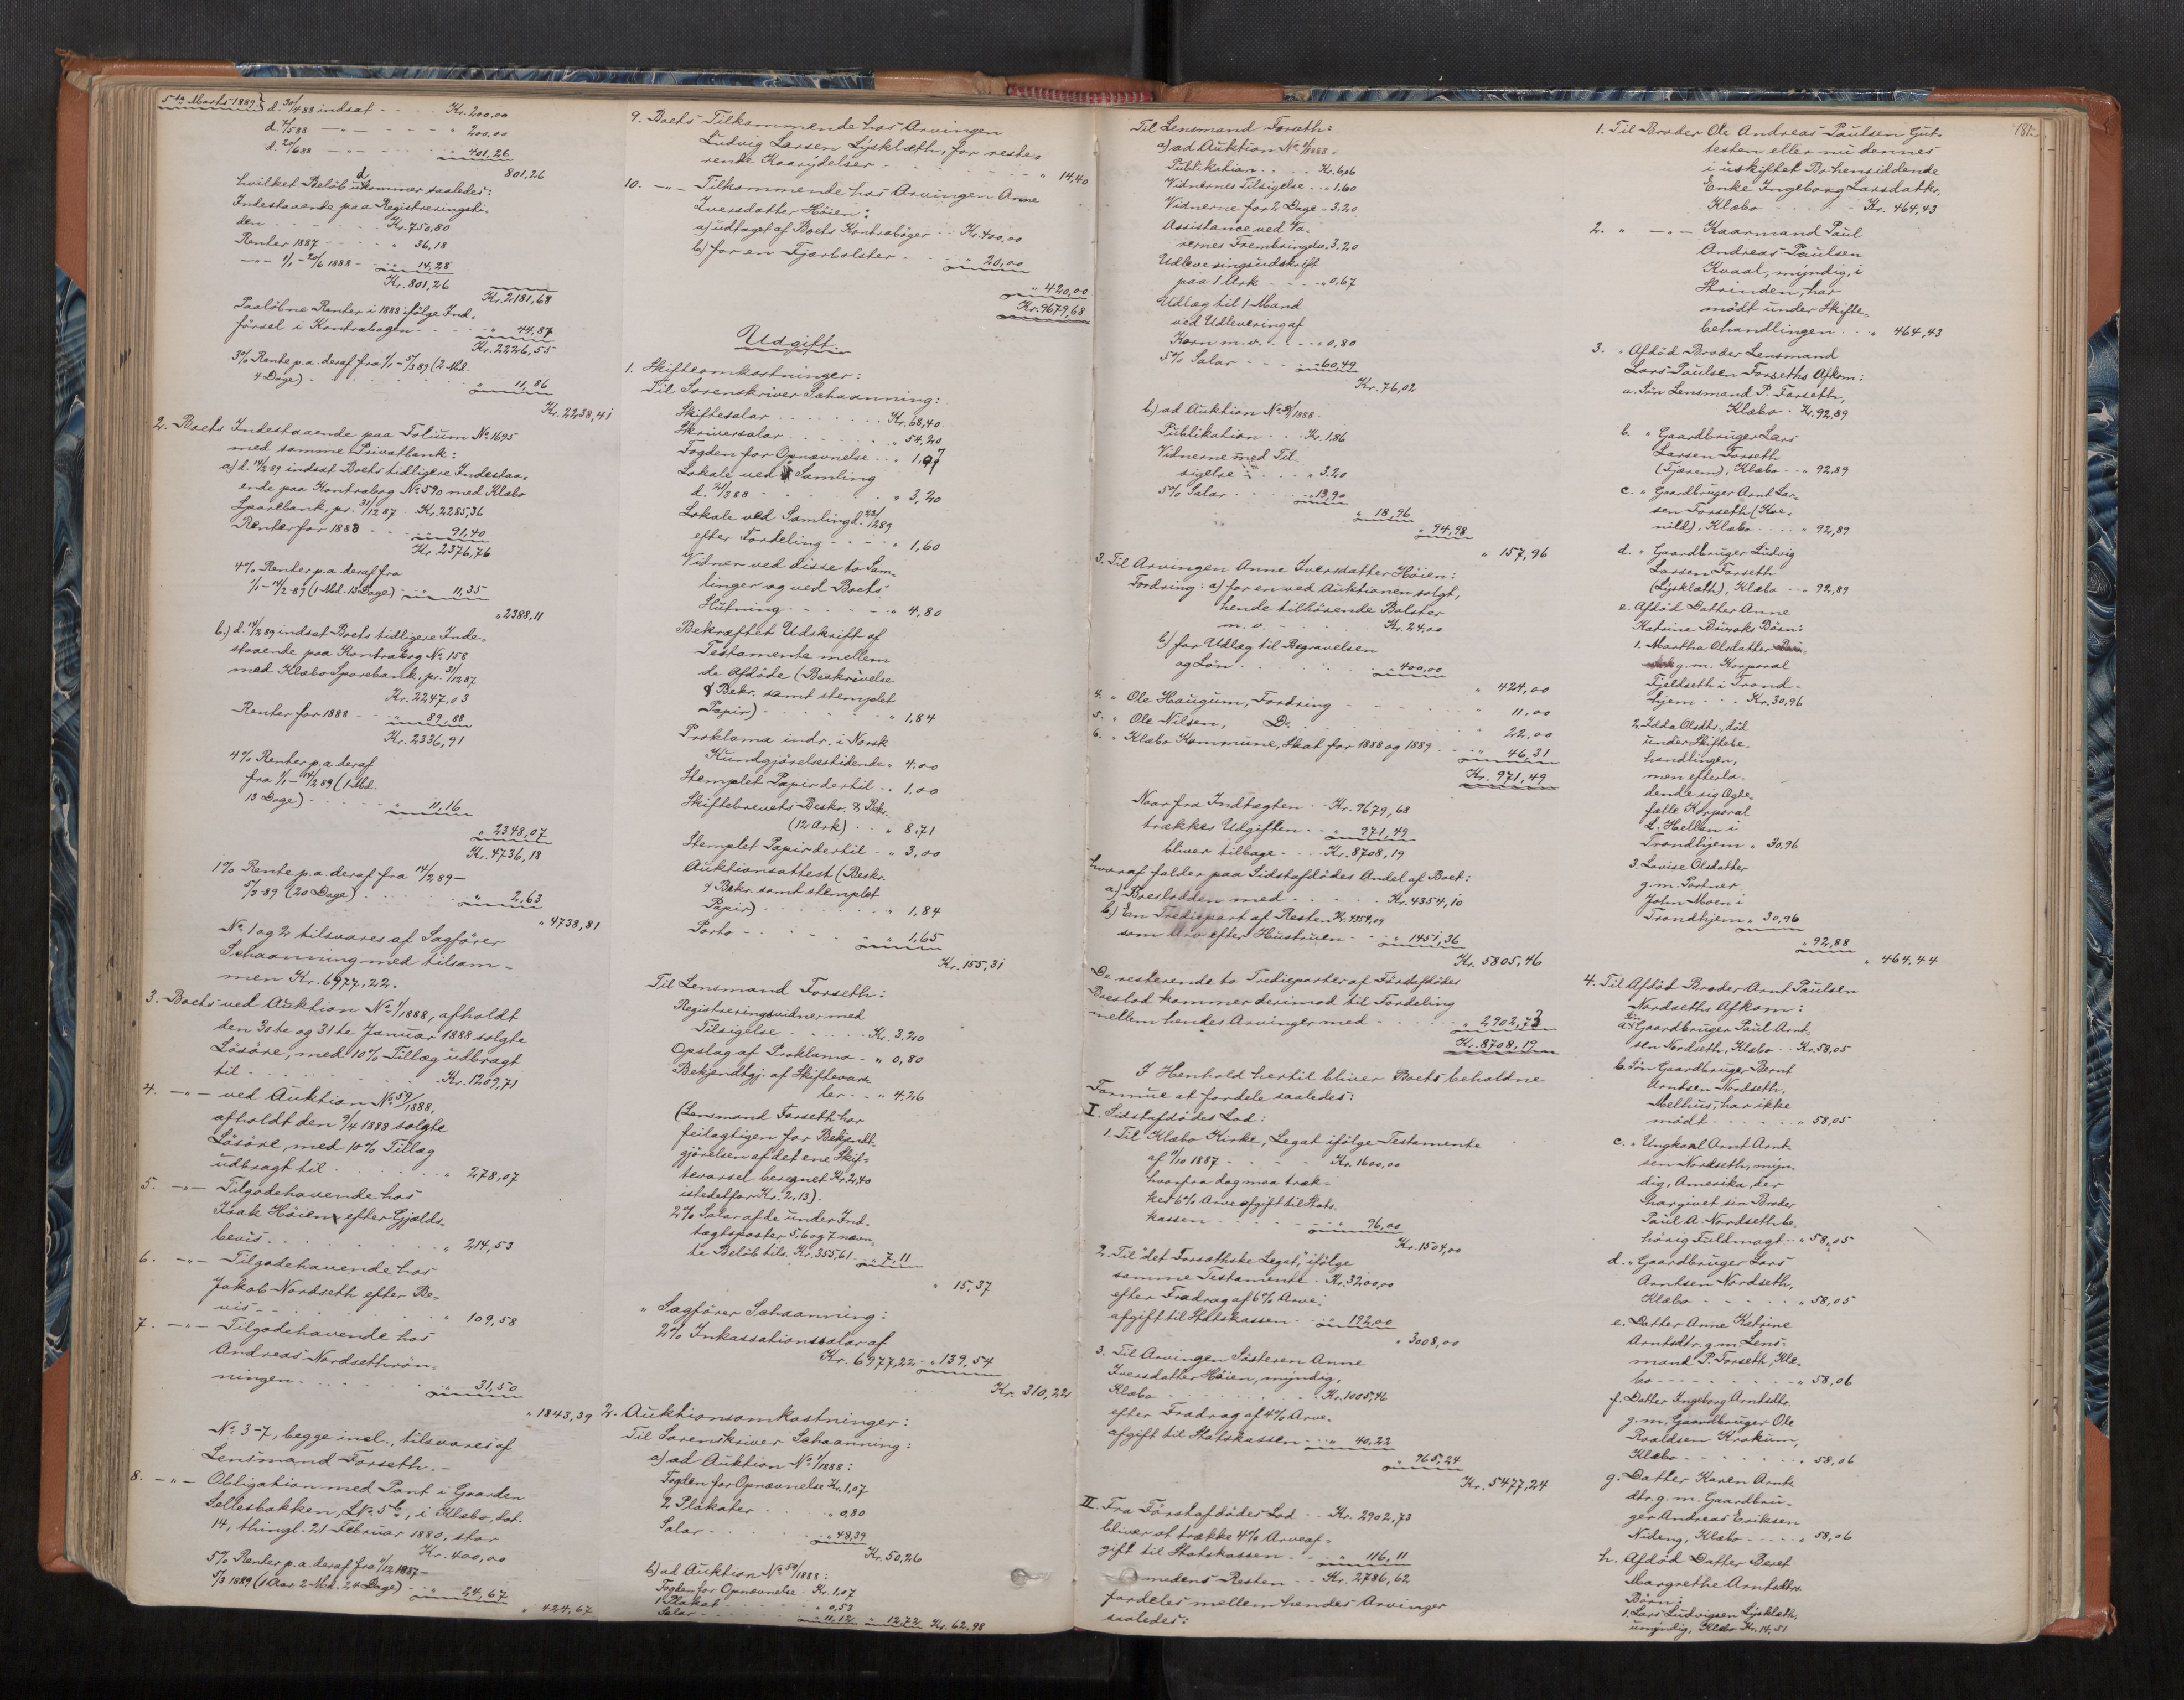 5te Marts 1889.
d. 30/4 88 indsat - - - Kr. 200,00
d. 7/5 88 —"— - - - " 200,00
d. 20/6 88 —"— - - " 401,26
801,26
hvilket Beløb udkommer saaledes:
Indestaaende paa Registreringsti-
den - - - - Kr. 750,80
Renter 1887 - - - - " 36,18
—"— 1/1 - 20/6 1888 - " 14,28
Kr. 801,26
Kr. 2181,68
Paaløbne Renter i 1888 ifølge Ind-
førsel i Kontrabogen - - - " 44,87
Kr. 2226,55
3% Rente p.a. deraf fra 1/1 - 5/3 89 (2 Md.
4 Dage) - - - - " 11,86
Kr. 2238,41
2. Boets Indestaaende paa Folium No. 1695
med samme Privatbank:
a) d. 14/2 89 indsat Boets tidligere Indestaa-
ende paa Kontrabog No. 590 med Klæbo
Sparebank, pr. 31/12 87 - Kr. 2285,36
Renter for 1888 - - - 91,40
Kr. 2376,76
4% Renter p.a. deraf fra
1/1 - 14/2 89 (1 Md. 13 Dage) - " 11,35
" 2388,11
b.) d. 14/2 89 indsat Boets tidligere Inde-
staaende paa Kontrabog No. 158
med Klæbo Sparebank, pr. 31/12 87
Kr. 2247,03
Renter for 1888 - - " 89,88
Kr. 2336,91
4% Renter p.a. deraf
fra 1/1 - 14/2 89 (1 Md.
13 Dage) - - - - " 11,16
" 2348,07
Kr. 4736,18
1% Rente p.a. deraf fra 14/2 89 —
5/3 89 (20 Dage) - - - " 2,63
" 4738,81
No. 1 og 2 tilsvares af Sagfører
Schaanning med tilsam-
men Kr. 6977,22.
3. Boets ved Auktion No. 1/1888, afholdt
den 30te og 31te Januar 1888 solgte
Løsøre, med 10% Tillæg udbragt
til - - - - - Kr. 1209,71
4. —"— ved Auktion No. 59/1888,
afholdt den 9/4 1888 solgte
Løsøre, med 10% Tillæg
udbragt til - - - - " 278,07
5. —"— Tilgodehavende hos
Isak Høien efter Gjælds-
bevis - - - - - " 214,53
6. —"— Tilgodehavende hos
Jakob Nordseth efter Be-
vis - - - - - " 109,58
7. —"— Tilgodehavende hos
Andreas Nordsethrøn-
ningen - - - - " 31,50
" 1843,39
No. 3-7, begge incl., tilsvares af
Lensmand Forseth. -
8. —"— Obligation med Pant i Gaarden
Sellesbakken, LNo. 5b, i Klæbo, dat.
14, thingl. 21 Februar 1880, stor
Kr. 400,00
5% Renter p.a. deraf fra 11/12 1887 -
5/3 1889 (1 Aar 2 Md. 24 Dage) - " 24,67
" 424,67
9. Boets Tilkommende hos Arvingen
Ludvig Larsen Lysklæth, for reste-
rende Kaarydelser - - - - " 14,40
10. —"— Tilkommende hos Arvingen Anne
Iversdatter Høien:
a) udtaget af Boets Kontrabøger - Kr. 400,00
b) for en Fjærbolster - - " 20,00
" 420,00
Kr. 9679,68
Udgift.
1. Skifteomkostninger:
Til Sorenskriver Schaanning:
Skiftesalar - - - - Kr. 68,40
Skriversalar - - - - " 54,20
Fogden for Opnævnelse - - " 1,07
Lokale ved Samling
d. 21/3 88 - - - - " 3,20
Lokale ved Samling d. 23/1 289
efter Fordeling - - - " 1,60
Vidner ved disse to Sam-
linger og ved Boets
Slutning - - - - " 4,80
Bekræftet Udskrift af
Testamente mellem
de Afdøde (Beskrivelse
& Bekr. samt stemplet
Papir) - - - - " 1,84
Proklama indr. i Norsk
Kundgjørelsestidende " 4.00
Stemplet Papir dertil - - 1.00
Skiftebrevets Beskr. & Bekr.
(12 Ark) - - " 8.71
Stemplet Papir dertil - - " 3,00
Auktionsattest (Beskr.
& Bekr. samt stemplet
Papir) - - - - " 1,84
Porto - - - - " 1,65
Kr. 155,31
Til Lensmand Forseth:
Registreringsvidner med
Tilsigelse - - - - Kr. 3.20
Opslag af Proklama - " 0,80
Bekjendtgj. af Skiftevars-
ler - - " 4.26
(Lensmand Forseth har
feilagtigen for Bekjendt-
gjørelsen af det ene Skif-
tevarsel beregnet Kr. 2,40
istedetfor Kr. 2,13).
2% Salar af de under Ind-
tægtsposter 5, 6 og 7 nævn-
te Beløb tils. Kr. 355,61 - " 7,11
" 15,37
" Sagfører Schaanning:
2% Inkassationssalar af
Kr. 6977,22 - " 139,54
Kr. 310,22
2. Auktionsomkostninger:
Til Sorenskriver Schaanning:
a) ad Auktion No. 1/1888:
Fogden for Opnævnelse Kr. 1,07
2 Plakater - - " 0,80
Salar - - - - " 48,39
Kr. 50,26
b) ad Auktion No. 59/1888:
Fogden for Opnævnelse - Kr. 1,07
1 Plakat - - - " 0,53
Salar - - - " 11,12 " 12,72 Kr. 62,98
Til Lensmand Forseth:
a) ad Auktion No. 1/1888.
Publikation - - Kr. 6,06
Vidnernes Tilsigelse - - " 1,60
Vidnerne for 2 Dage - 3.20
Assistance ved Va-
rernes Frembringelse. 3.20
Udleveringsudskrift
paa 1 Ark - - - - " 0,67
Udlæg til 1 Mand
ved Udlevering af
Korn m.v. - - - " 0,80
5% Salar - - - " 60,49
Kr. 76,02
b.) ad Auktion No. 59/1888.
Publikation - - - Kr. 1,86
Vidnerne med Til-
sigelse - - - " 3.20
5% Salar - - - " 13,90
" 18,96
" 94,98
" 157,96
3. Til Arvingen Anne Iversdatter Høien:
Fordring: a) for en ved Auktionen solgt,
hende tilhørende Bolster
m.v. - - - - Kr. 24.00
b) for Udlæg til Begravelsen
og Løn - - - - " 400,00
" 424,00
4. " Ole Haugum, Fordring - - - " 11,00
5. " Ole Nilsen, Do. - - - " 22,00
6. " Klæbo Kommune, Skat for 1888 og 1889 - " 46,31
Kr. 971,49
Naar fra Indtægten - - Kr. 9679,68
trækkes Udgiften - - " 971,49
bliver tilbage - - - Kr. 8708,19
hvoraf falder paa Sidstafdødes Andel af Boet:
a) Boeslodden med - - - - Kr. 4354,10
b) En Trediepart af Resten Kr. 4354,09
som Arv efter Hustruen - - " 1451,36
Kr. 5805,46
De resterende to Tredieparter af Førstafdødes
Boeslod kommer derimod til Fordeling
mellem hendes Arvinger med - - - " 2902,73
Kr. 8708,19
I Henhold hertil bliver Boets beholdne
Formue at fordele saaledes:
I. Sidstafdødes Lod:
1. Til Klæbo Kirke, Legat ifølge Testamente
af 11/10 1887 - - - Kr. 1600,00
hvorfra dog maa træk-
kes 6% Arveafgift til Stats-
kassen - - - - " 96,00
Kr. 1504,00
2. Til "det Forsethske Legat", ifølge
samme Testamente - Kr. 3200,00
efter Fradrag af 6% Arve-
afgift til Statskassen - - " 192,00
" 3008,00
3. Til Arvingen Søsteren Anne
Iversdatter Høien, myndig,
Klæbo - - - - Kr. 1005,46
efter Fradrag af 4% Arve-
afgift til Statskassen - - " 40,22
" 965,24
Kr. 5477,24
II. Fra Førstafdødes Lod - - Kr. 2902,73
bliver at trække 4% Arveaf-
gift til Statskassen - - " 116,11
medens Resten - - Kr. 2786,62
fordeles mellem hendes Arvinger
saaledes:
181.
1. Til Broder Ole Andreas Paulsen Gut-
testen eller nu dennes
i uskiftet Bo hensiddende
Enke Ingeborg Larsdatter,
Klæbo - - - - Kr. 464,43
2. " —"— Kaarmand Paul
Andreas Paulsen
Kvaal, myndig, i
Strinden, har
mødt under Skifte-
behandlingen - - " 464,43
3. " Afdød Broder Lensmand
Lars Paulsen Forseths Afkom:
a. Søn Lensmand P. Forseth,
Klæbo - Kr. 92,89
b. " Gaardbruger Lars
Larsen Forseth
(Fjærem), Klæbo - - " 92,89
c. " Gaardbruger Arnt Lar-
sen Forseth (Kve-
nild), Klæbo - - - " 92,89
d. " Gaardbruger Ludvig
Larsen Forseth
(Lysklæth), Klæbo - - " 92,89
e. Afdød Datter Anne
Katrine Buvaks Børn:
1. Martha Olsdatter
g.m. Korporal
Fjeldseth i Trond-
hjem - - - Kr. 30,96
2. Idda Olsdtr., død
under Skiftebe-
handlingen,
men efterla-
dende sig Ægte-
fælle Korporal
L. Hellen i
Trondhjem " 30,96
3. Lovise Olsdatter
g.m. Portner
John Moen i
Trondhjem " 30,96
" 92,88
" 464,44
4. Til Afdød Broder Arnt Paulsen
Nordseths Afkom:
a. Søn Gaardbruger Paul Arnt-
sen Nordseth, Klæbo - - Kr. 58,05
b. Søn Gaardbruger Bernt
Arntsen Nordseth,
Melhus, har ikke
mødt - - - - " 58,05
c. " Ungkarl Arnt Arnt-
sen Nordseth, myn-
dig, Amerika, der
har givet sin Broder
Paul A. Nordseth be-
hørig Fuldmagt - - " 58,05
d. " Gaardbruger Lars
Arntsen Nordseth,
Klæbo - - - - " 58,05
e. Datter Anne Katrine
Arntsdtr. g.m. Lens-
mand P. Forseth, Klæ-
bo - - - - - " 58,06
f. Datter Ingeborg Arntsdtr.
g.m. Gaardbruger Ole
Roaldsen Krokum,
Klæbo - - - - " 58,06
g. Datter Karen Arnts-
dtr. g.m. Gaardbru-
ger Andreas Eriksen
Nideng, Klæbo - - - " 58,06
h. Afdød Datter Beret
Margrethe Arntsdtrs.
Børn:
1. Lars Ludvigsen Lysklæth,
umyndig, Klæbo Kr. 14,51